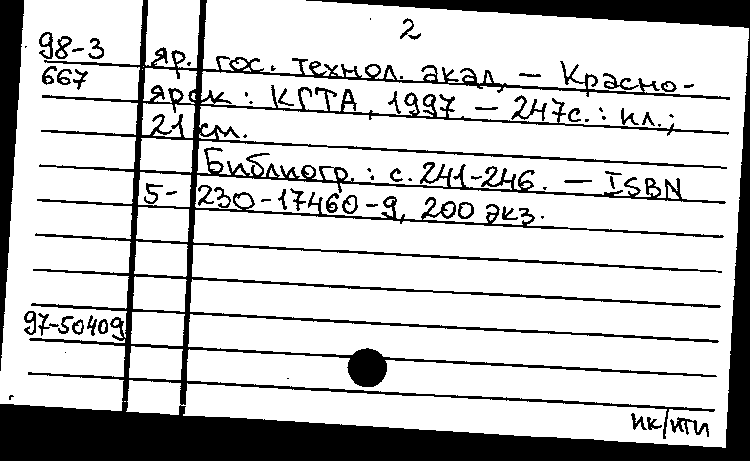 2
98-3
667
яр. гос. технол. акад. — Красно-
ярск : КГТА, 1997. — 247с. : ил.;
21 см.
Библиогр. : с. 241-246. — ISBN
5-230-17460-9, 200 экз.
97-50409
ик/кти